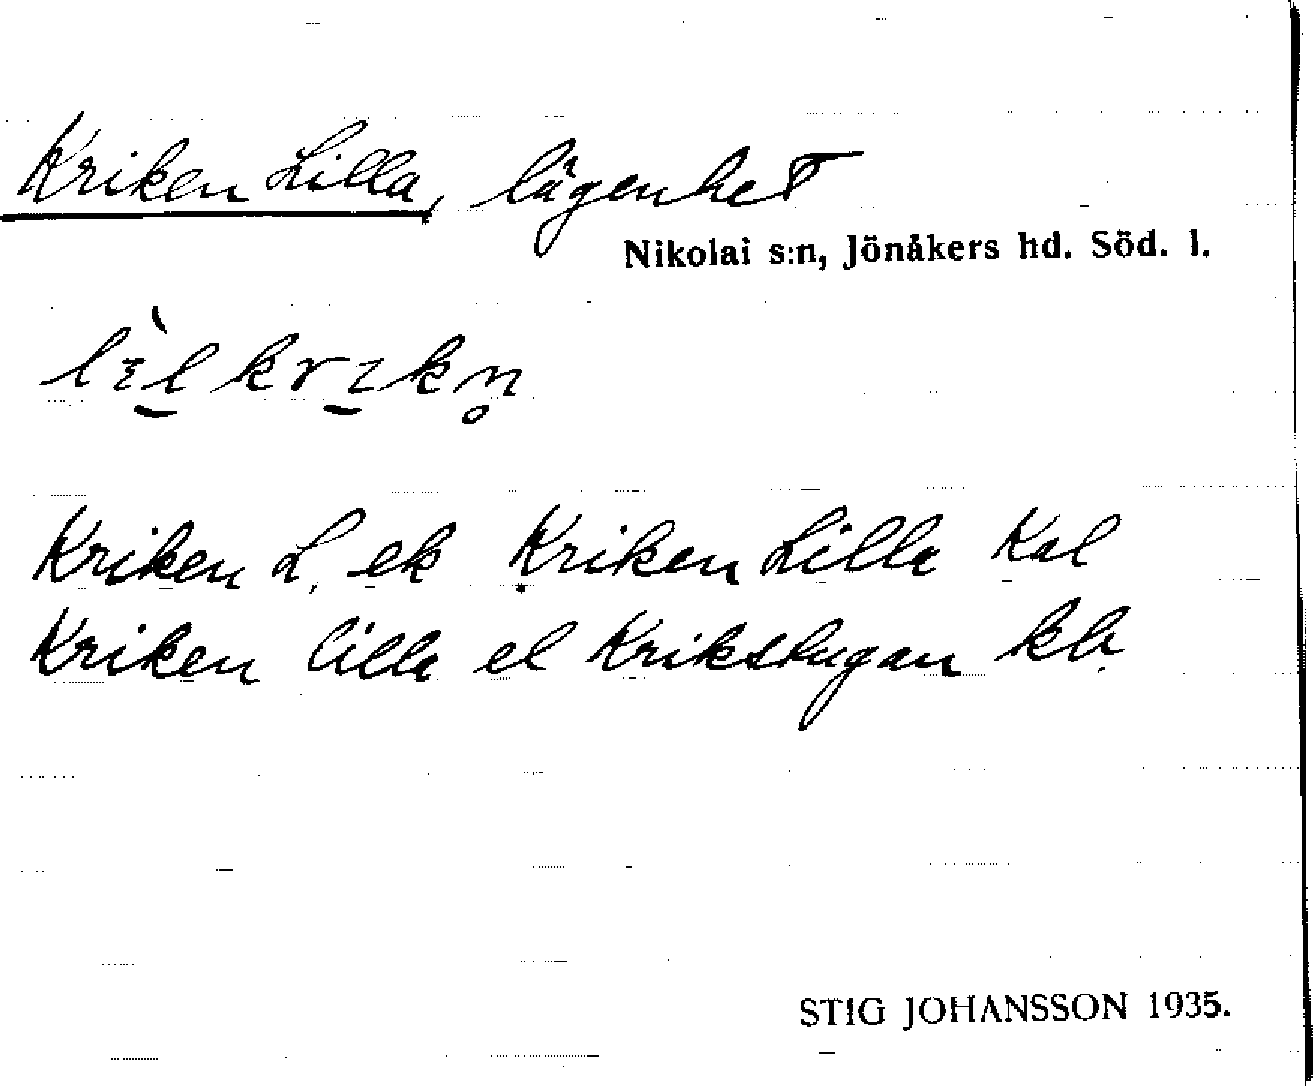 Kriken Lilla, lägenhet
Nikolai s:n, Jönåkers hd. Söd. l.
Kriken L. ek Kriken Lilla Kal
Kriken lilla el Krikstugan kb.
STIG JOHANSSON 1935.